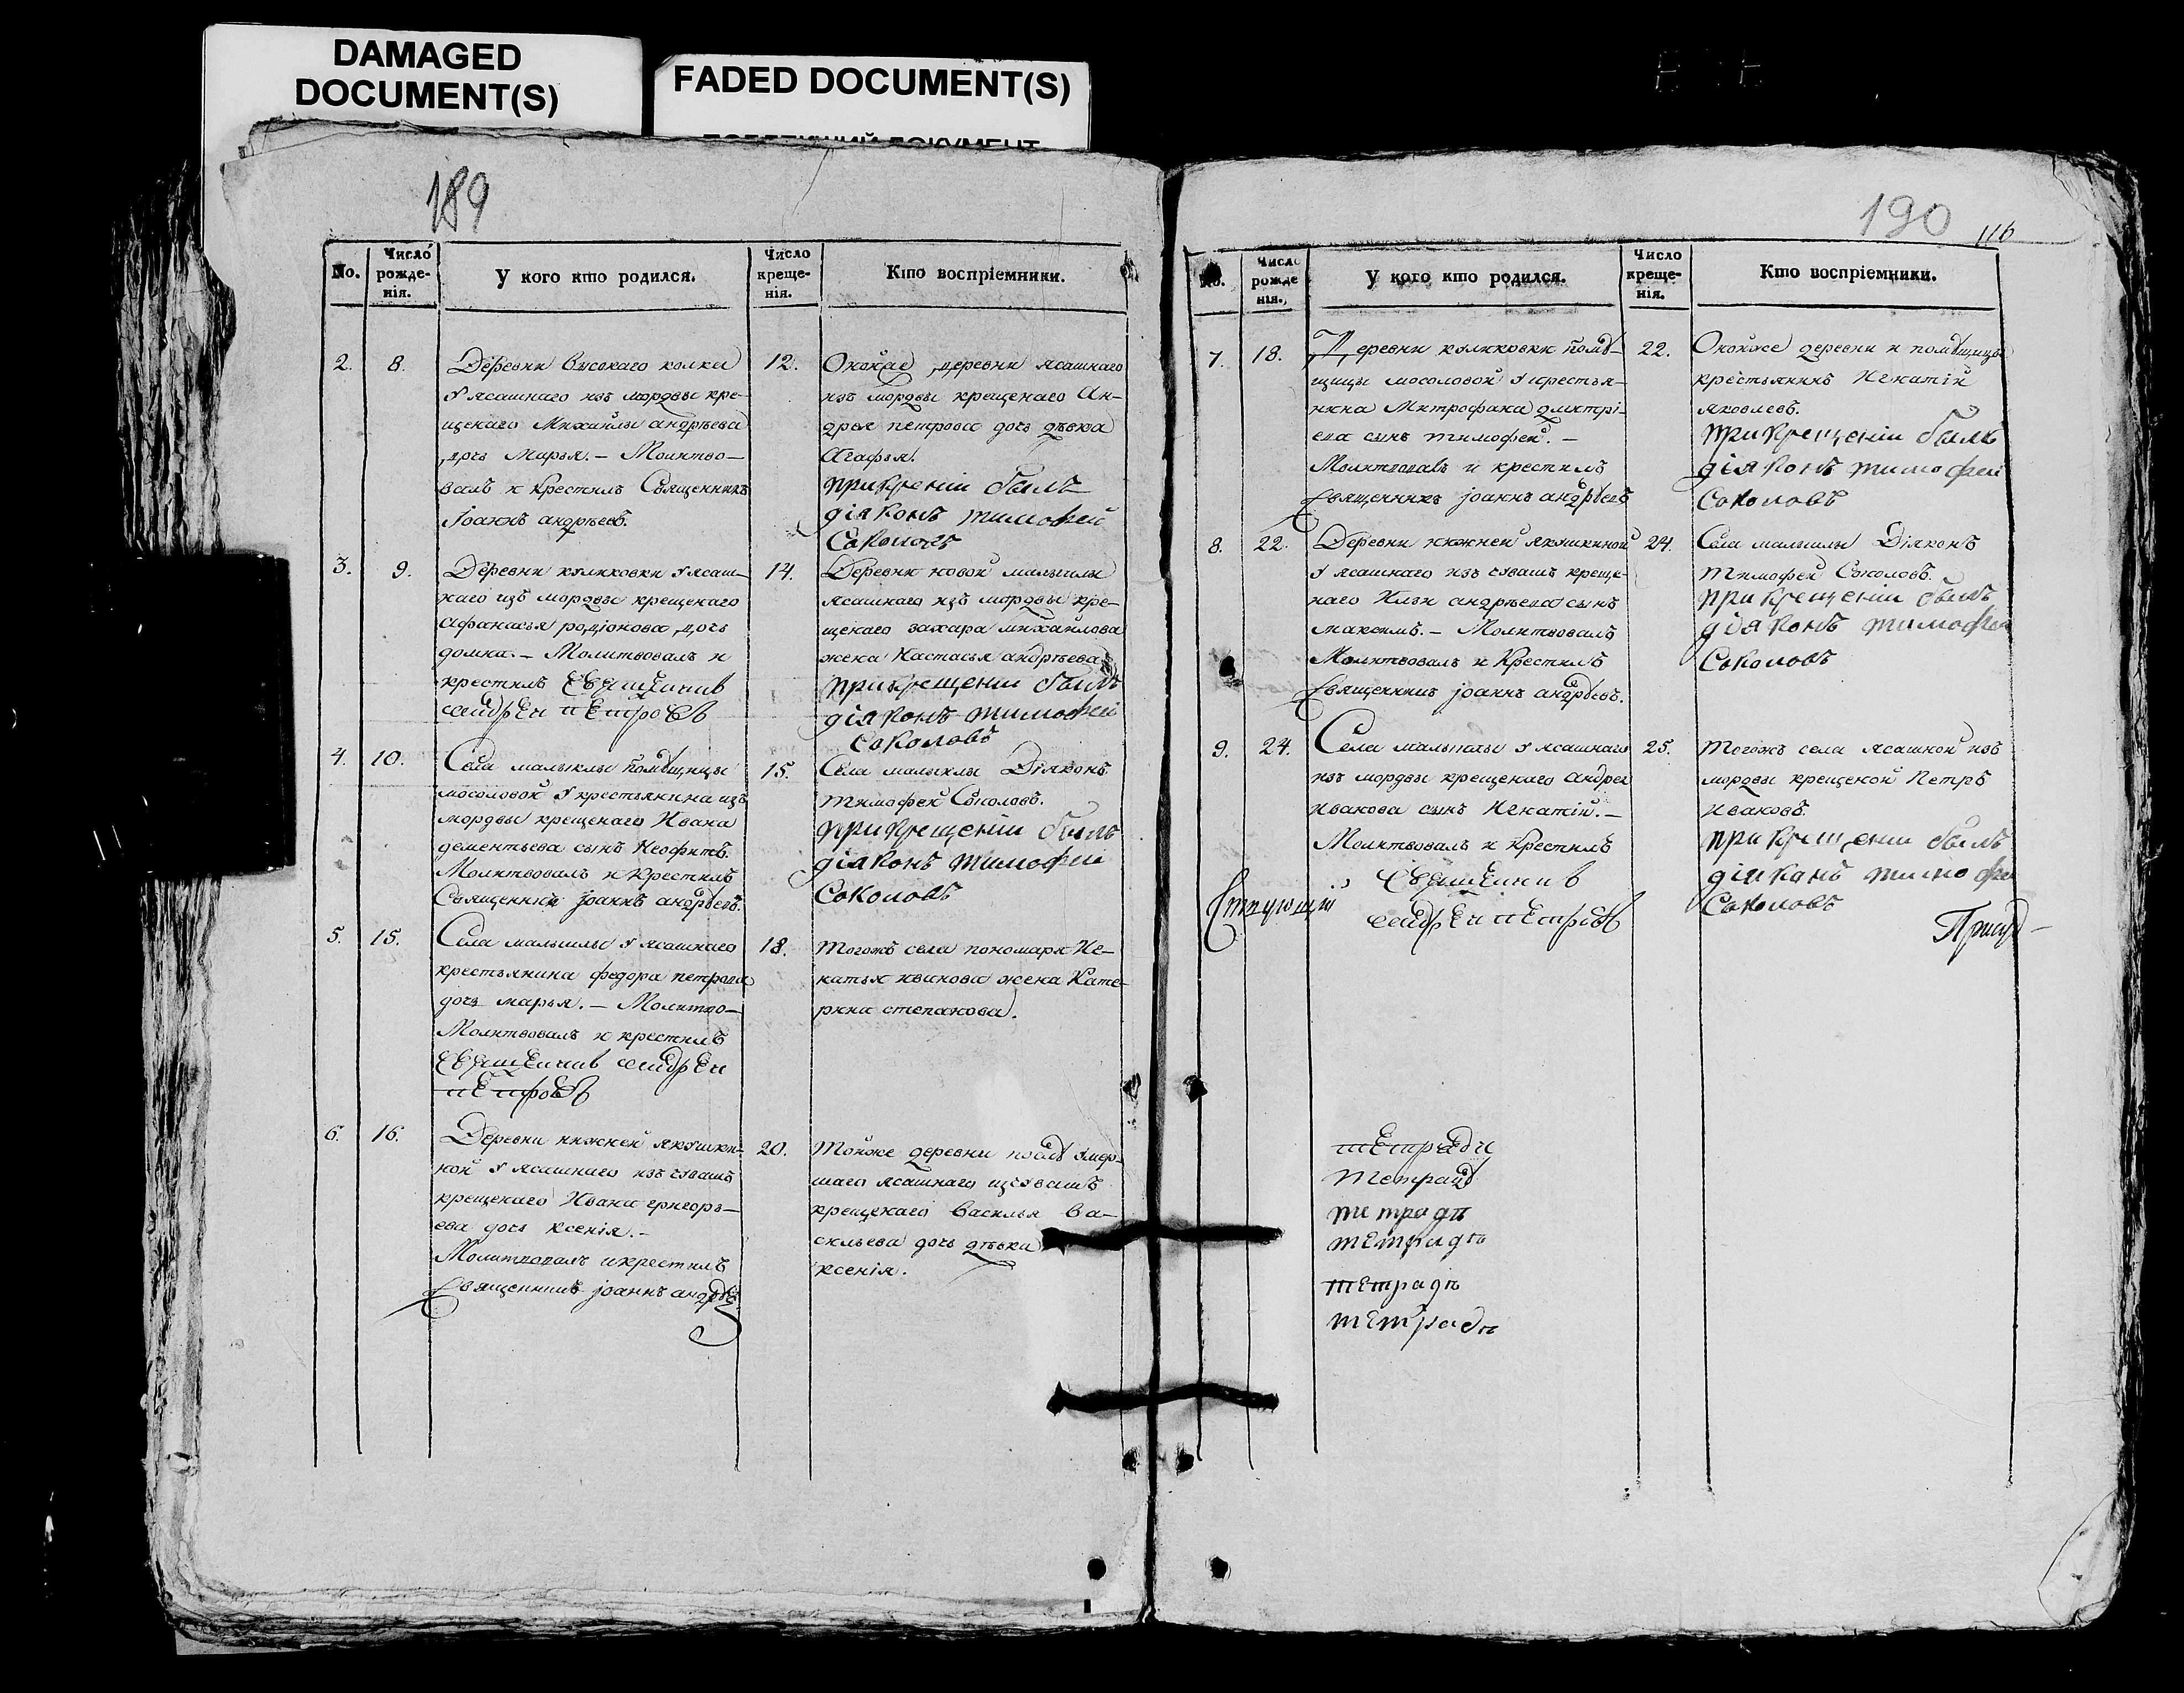 DAMAGED
DOCUMENT(S)
FADED DOCUMENT(S)
189
No.
Число рожде-нія.
У кого кто родился.
Число креще-нія.
Кто воспріемники.
2. 8.
Деревни Высокаго колка
У ясашнаго изъ мордвы кре-
щенаго Михаилы андрѣева
дочь Марья. — Молитво-
валъ и Крестилъ Священникъ
Іоаннъ андрѣевъ.
12.
Оной же деревни ясашнаго
изъ мордвы крещенаго Ан-
дрея петрова дочь дѣвка
Агафья.
при креніи былъ
діяконъ тимофей
Соколовъ
3. 9.
Деревни куликовки У ясаш-
наго изъ мордвы крещенаго
афанасья родіонова дочь
домна. — Молитвовалъ и
крестилъ Священникъ
андрей петровъ
14.
Деревни новой малыклы
ясашнаго изъ мордвы кре-
щенаго захара михайлова
жена Настасья андрѣева
при крещеніи былъ
діяконъ тимофей
Соколовъ
4. 10.
Села малыклы помѣщицы
мосоловой У крестьянина изъ
мордвы крещенаго Ивана
дементьева сынъ Неофитъ.
Молитвовалъ и Крестилъ
Священникъ Іоаннъ андрѣевъ.
15.
Села малыклы Діяконъ
тимофей Соколовъ.
при крещеніи былъ
діяконъ тимофей
Соколовъ
5. 15.
Села малыклы У ясашнаго
крестьянина федора петрова
дочь марья. — Молитво-
Молитвовалъ и крестилъ
Священникъ андрей
петровъ
18.
тогожъ села пономаря Иг-
натья иванова жена Кате-
рина степанова.
6. 16.
Деревни нижней якушки-
ной У ясашнаго изъ чувашъ
крещенаго Ивана григорь-
ева дочь ксенія. —
Молитвовалъ и крестилъ
Священникъ іоаннъ андрѣевъ
20.
тойже деревни послѣ умер-
шаго ясашнаго изчувашъ
крещенаго василья ва-
сильева дочь дѣвка
ксенія.
190
116
No.
Число рожде нія.
У кого кто родился.
Число креще-нія.
Кто воспріемники.
7. 18.
Деревни куликовки помѣ-
щицы мосоловой У крестья-
нина Митрофана дмитрі-
ева сынъ тимофей. —
Молитвовалъ и крестилъ
Священникъ іоаннъ андрѣевъ
22.
Оной же деревни и помѣщицы
крестьянинъ Игнатій
яковлевъ.
при крещеніи былъ
діяконъ тимофей
Соколовъ
8. 22.
Деревни нижней якушкиной
У ясашнаго изъ чувашъ креще-
наго Ильи андрѣева сынъ
максимъ. — Молитвовалъ
Молитвовалъ и Крестилъ
Священникъ іоаннъ андрѣевъ.
24.
Села малыклы Діяконъ
тимофей Соколовъ.
при крещеніи былъ
діяконъ тимофей
Соколовъ
9. 24.
Села малыклы У ясашнаго
изъ мордвы крещенаго андрея
иванова сынъ Игнатій. —
Молитвовалъ и Крестилъ
Священникъ
андрей петровъ
25.
тогожъ села ясашной изъ
мордвы крещеной Петръ
Ивановъ.
при крещеніи былъ
діяконъ тимофе
Соколовъ
тетради
тетрад
тетради
тетради
тетради
тетради